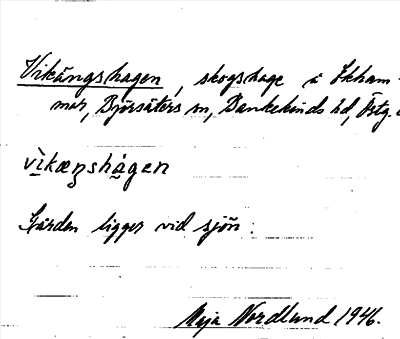 Vikängshagen, skogshage å Ekham-
mar, Björsäters sn, Bankekinds hd, Östg.
vìkæŋshàgen
Gården ligger vid sjön.
Maja Nordlund 1946.